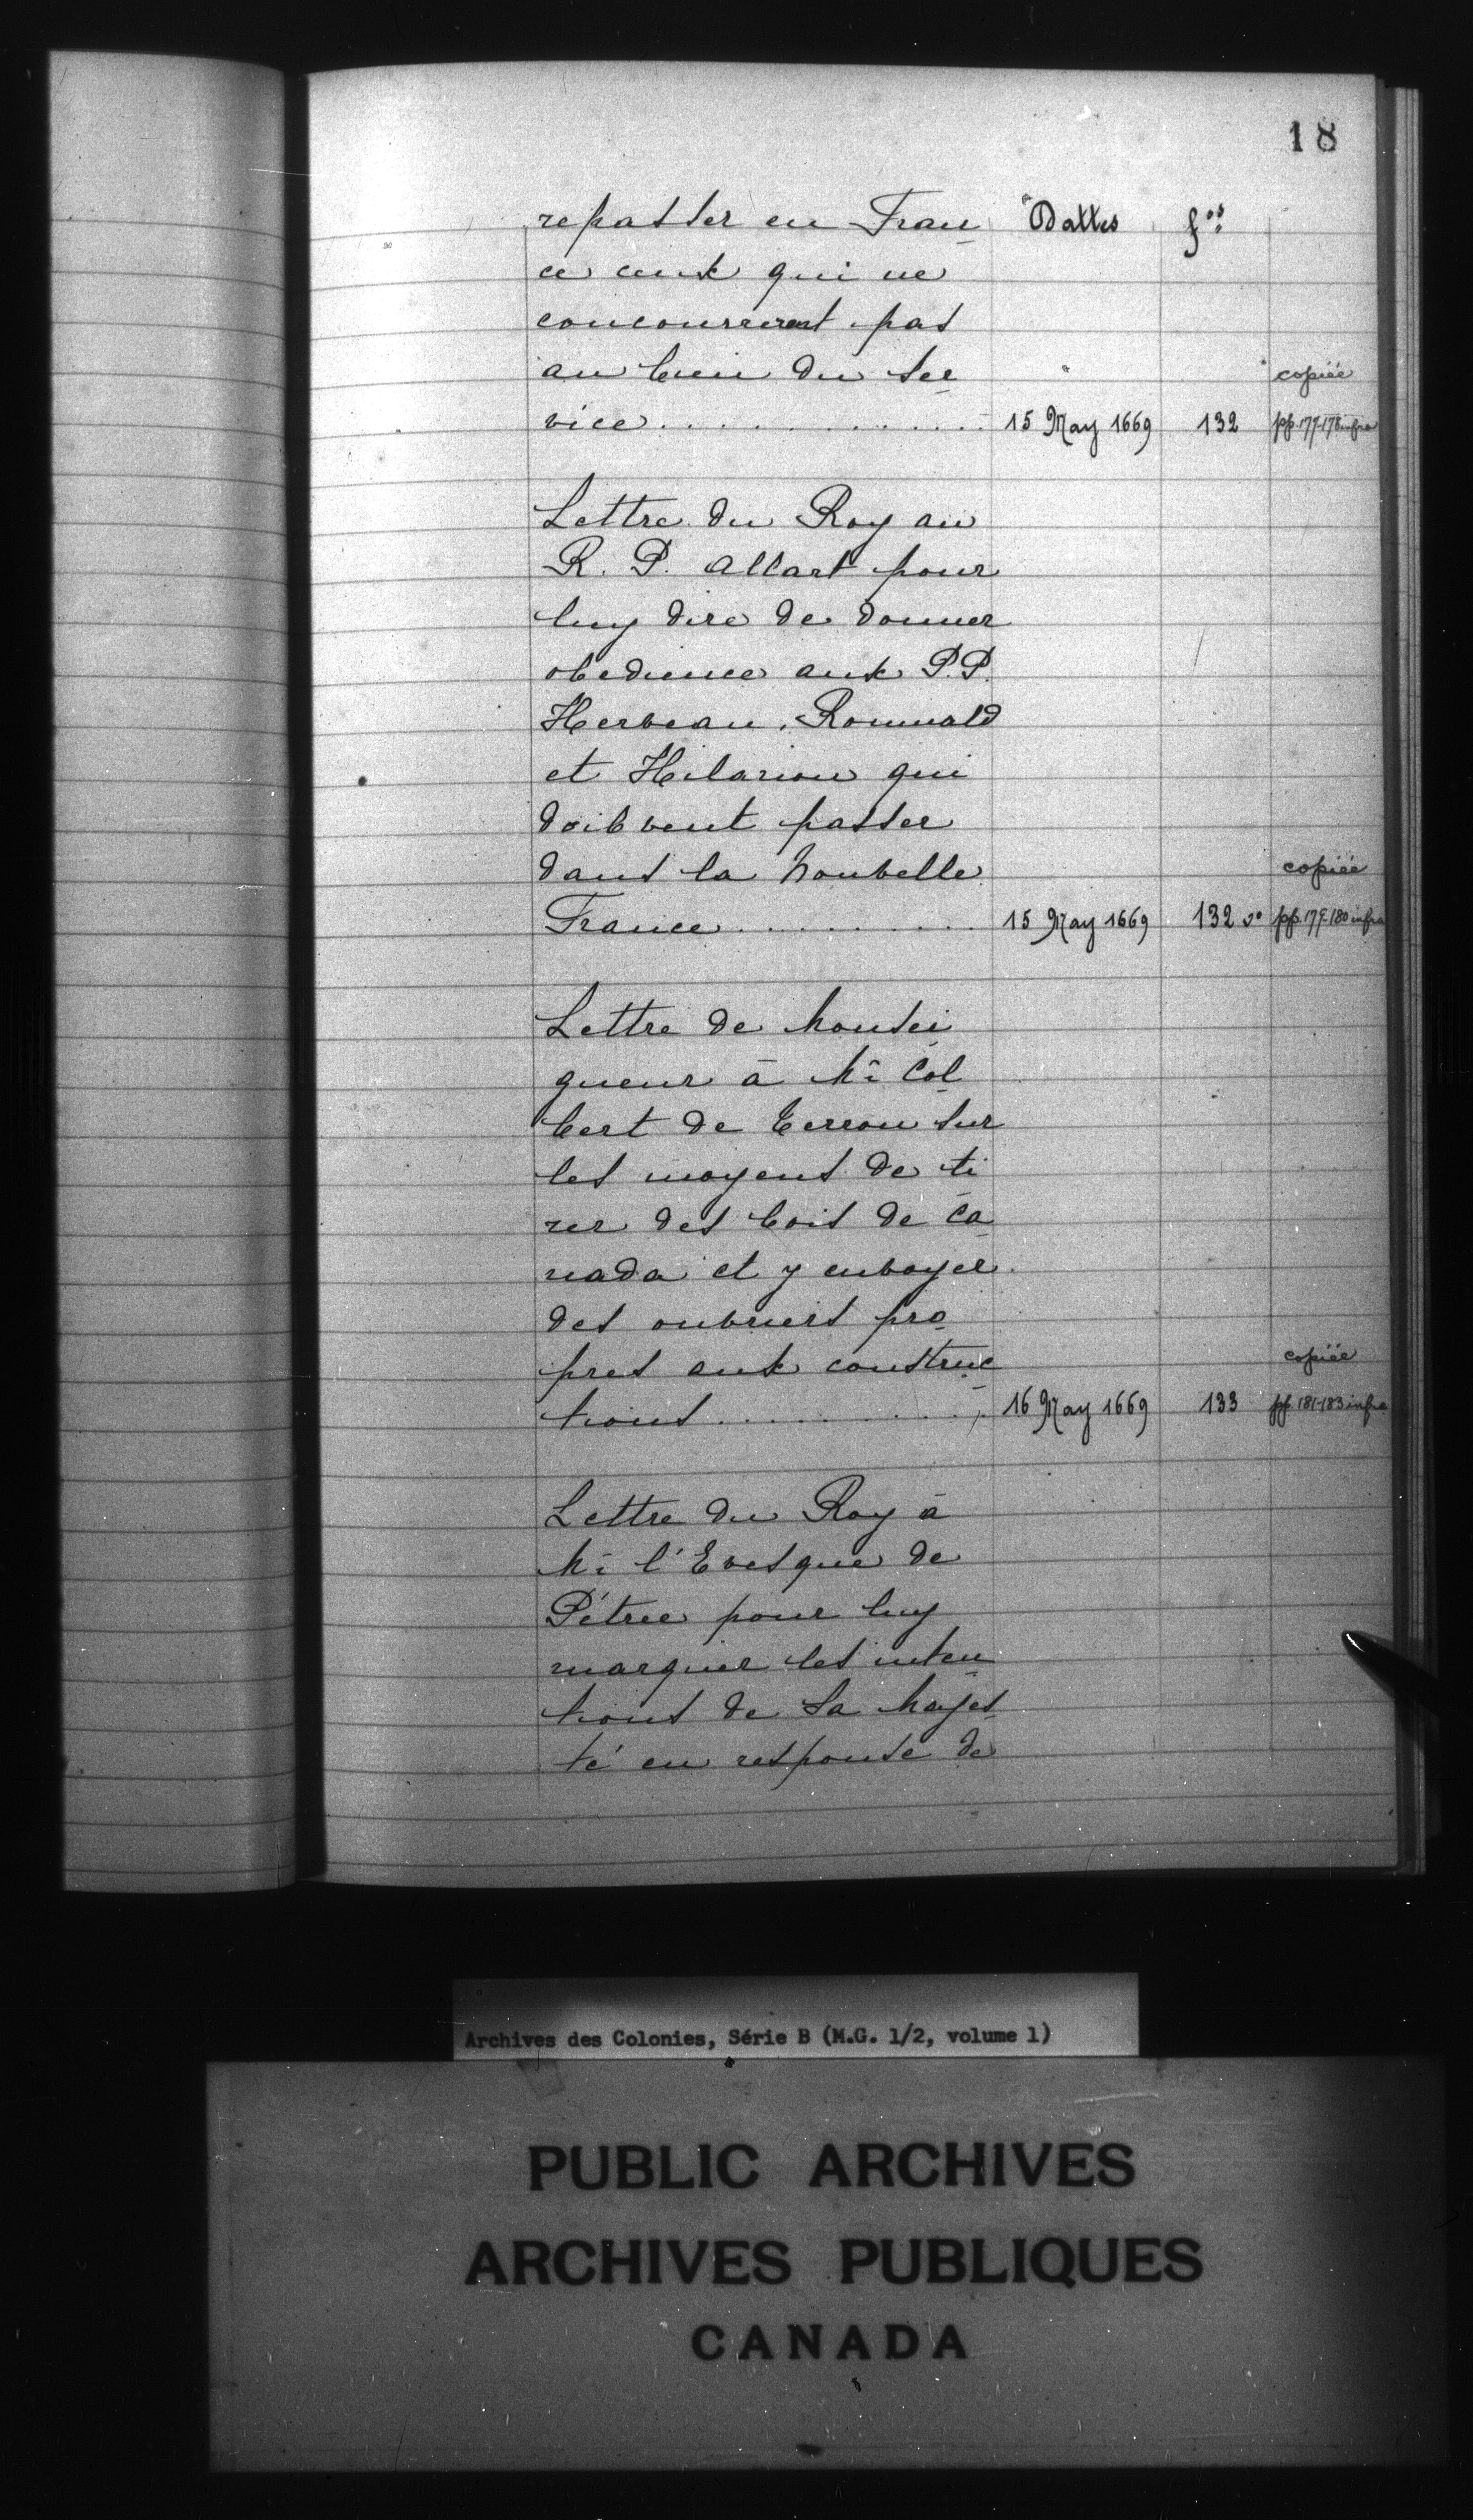 18
repasser en Fran Dattes fos
ce ceux qui ne
concourreront pas
au bien du ser copiée
vice............. 15 May 1669 132 pp. 177-178 infra
Lettre du Roy au
R. P. Allart pour
luy dire de donner
obedience aux P.P.
Herveau, Romuald
et Hilarion qui
doibvent passer
dans la Nouvelle copiée
France.......... 15 May 1669 132 vo pp. 179-180 infra
Lettre de Monsei
gneur à Mr Col
bert de Terron sur
les moyens de ti
rer des bois de Ca
nada et y envoyer
des ouvriers pro
pres aux construc copiée
tions........... 16 May 1669 133 pp. 181-183 infra
Lettre du Roy à
Mr l'Evesque de
Pétrée pour luy
marquer les inten
tions de Sa Majes
té en response de
Archives des Colonies, Série B (M.G. 1/2, volume 1)
PUBLIC ARCHIVES
ARCHIVES PUBLIQUES
CANADA